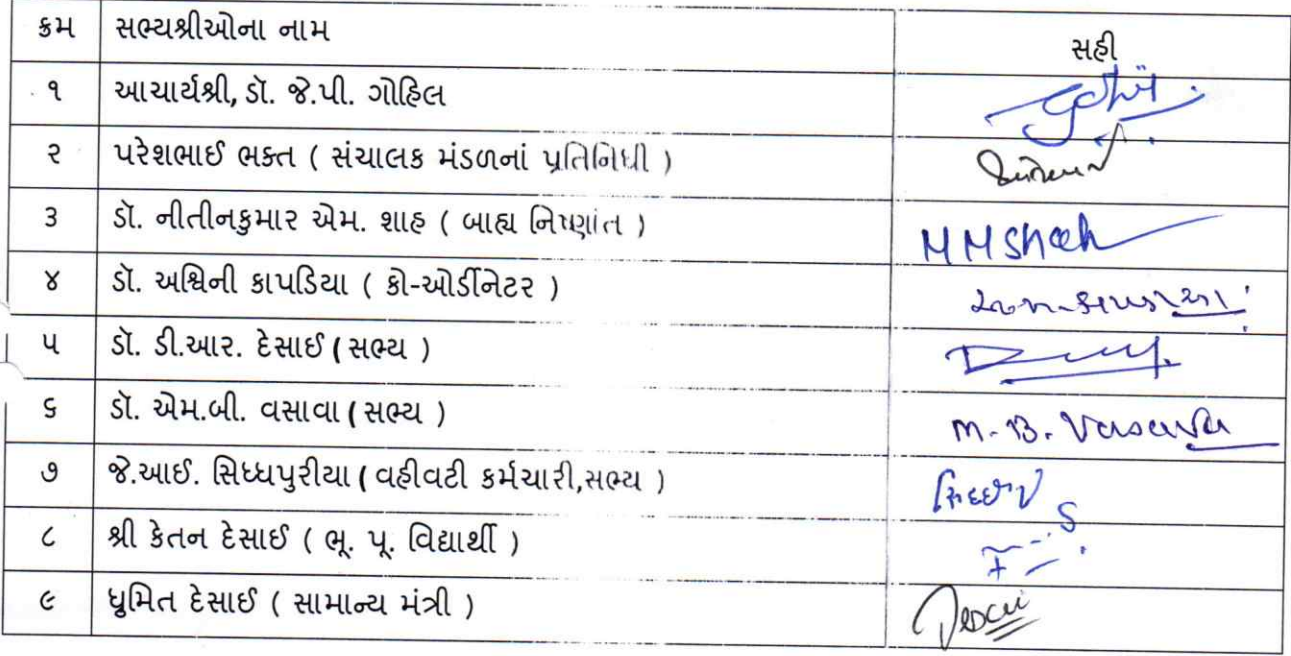 ક્રમ સભ્યશ્રીઓના નામ સહી
૧ આચાર્યશ્રી, ડૉ. જે.પી. ગોહિલ
૨ પરેશભાઈ ભક્ત ( સંચાલક મંડળનાં પ્રતિનિધી )
૩ ડૉ. નીતીનકુમાર એમ. શાહ ( બાહ્ય નિષ્ણાંત ) M M Shah
૪ ડૉ. અશ્વિની કાપડિયા ( કો-ઓર્ડીનેટર )
૫ ડૉ. ડી.આર. દેસાઈ ( સભ્ય )
૬ ડૉ. એમ.બી. વસાવા ( સભ્ય ) M. B. Vasava
૭ જે.આઈ. સિધ્ધપુરીયા ( વહીવટી કર્મચારી,સભ્ય )
૮ શ્રી કેતન દેસાઈ ( ભૂ. પૂ. વિદ્યાર્થી )
૯ ધ્રુમિત દેસાઈ ( સામાન્ય મંત્રી ) Desai